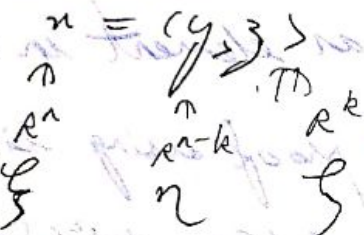 x = (y, z)
∩ ∩ ∩
R^n R^{n-k} R^k
ξ η ζ